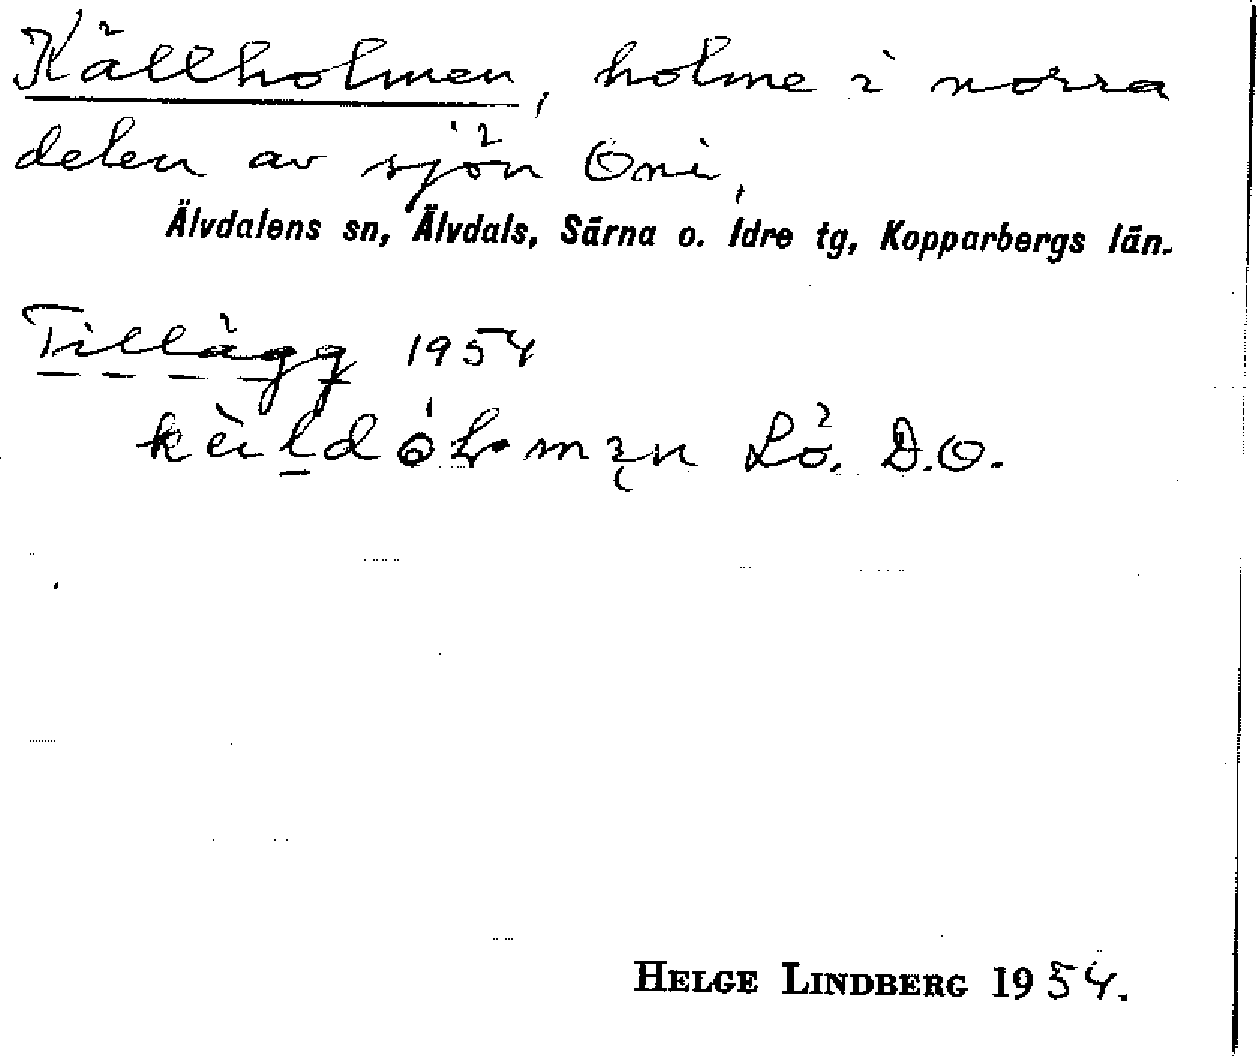 Källholmen, holme i norra
delen av sjön Oni,
Älvdalens sn, Älvdals, Särna o. Idre tg, Kopparbergs län.
Tillägg 1954
Lö. D.O.
HELGE LINDBERG 1954.